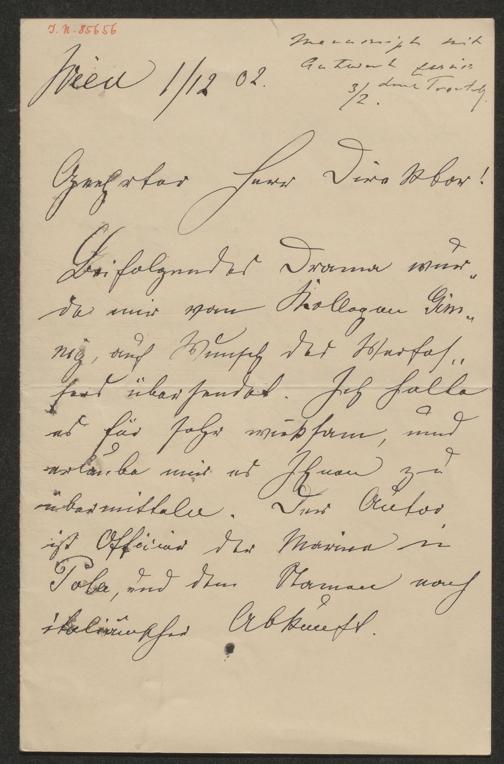 J.N. 85656
Manuscript mit
Antwort
3/2.
Wien 1/12 02.
Geehrter Herr Direktor!
Beifolgendes Drama wur„
de mir vom Kollegen Gim„
nig, auf Wunsch des Verfas„
sers übersendet. Ich halte
es für sehr wirksam, und
erlaube mir es Ihnen zu
übermitteln. Der Autor
ist Officier der Marine in
Pola, und dem Namen nach
italiänischer Abkunft.